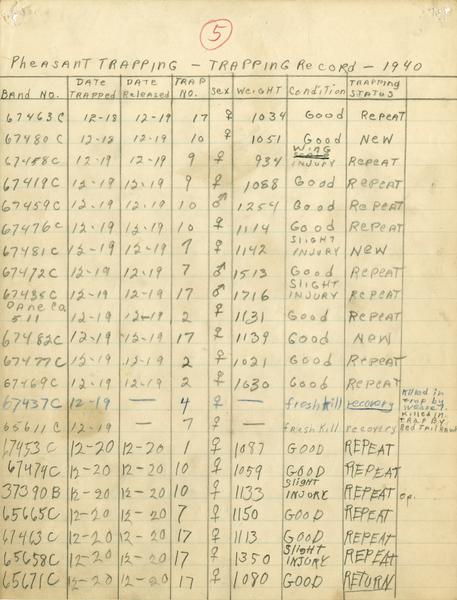 5
Pheasant Trapping - Trapping Record - 1940
Band No. Date Trapped Date Released Trap No. Sex Weight Condition Trapping Status
67463C 12-18 12-19 17 ♀ 1034 Good Repeat
67480C 12-18 12-19 10 ♀ 1051 Good New
67458C 12-19 12-19 9 ♀ 934 Wing Injury Repeat
67419C 12-19 12-19 9 ♀ 1088 Good Repeat
67459C 12-19 12-19 10 ♂ 1254 Good Repeat
67476C 12-19 12-19 10 ♀ 1114 Good Repeat
67481C 12-19 12-19 7 ♀ 1142 Slight Injury New
67472C 12-19 12-19 7 ♂ 1513 Good Repeat
67435C 12-19 12-19 17 ♂ 1716 Slight Injury Repeat
Dane Co. 511 12-19 12-19 2 ♀ 1131 Good Repeat
67482C 12-19 12-19 17 ♀ 1139 Good New
67477C 12-19 12-19 2 ♀ 1021 Good Repeat
67469C 12-19 12-19 2 ♀ 1030 Good Repeat
67437C 12-19 — 4 ♀ — fresh kill recovery Killed in trap by weasel
65611C 12-19 — 7 ♀ — fresh kill recovery Killed in trap by Red Tail Hawk
67453C 12-20 12-20 1 ♀ 1087 Good Repeat
67474C 12-20 12-20 10 ♀ 1059 Good Repeat
37390B 12-20 12-20 10 ♀ 1133 Slight Injury Repeat
65665C 12-20 12-20 7 ♀ 1150 Good Repeat
67463C 12-20 12-20 17 ♀ 1113 Good Repeat
65658C 12-20 12-20 17 ♀ 1350 Slight Injury Repeat
65671C 12-20 12-20 17 ♀ 1080 Good Return